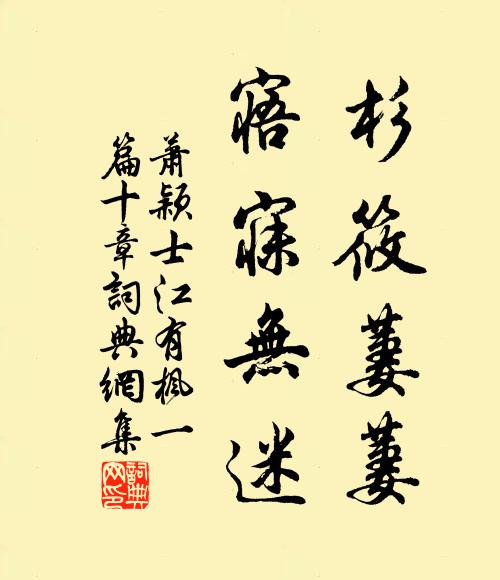 杉筱萋萋
寤寐無迷
蕭穎士江有楓一
篇十章詞典網集
詞典
网印